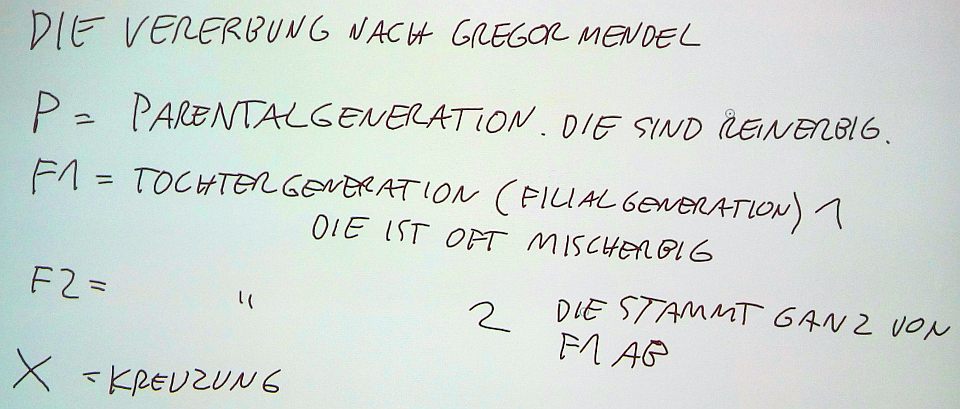 DIE VERERBUNG NACH GREGOR MENDEL
P = PARENTALGENERATION. DIE SIND REINERBIG.
F1 = TOCHTERGENERATION (FILIALGENERATION) 1
DIE IST OFT MISCHERBIG
F2 = " 2 DIE STAMMT GANZ VON
F1 AB
X = KREUZUNG